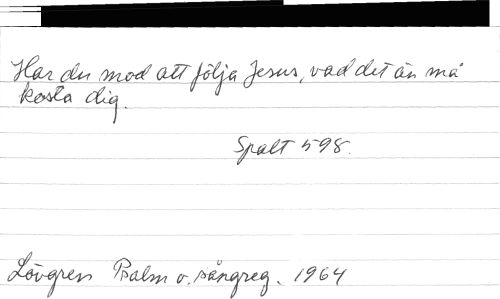 Har du mod att följa Jesus, vad det än må
kosta dig.
Spalt 598.
Lövgren Psalm o. sångreg. 1964